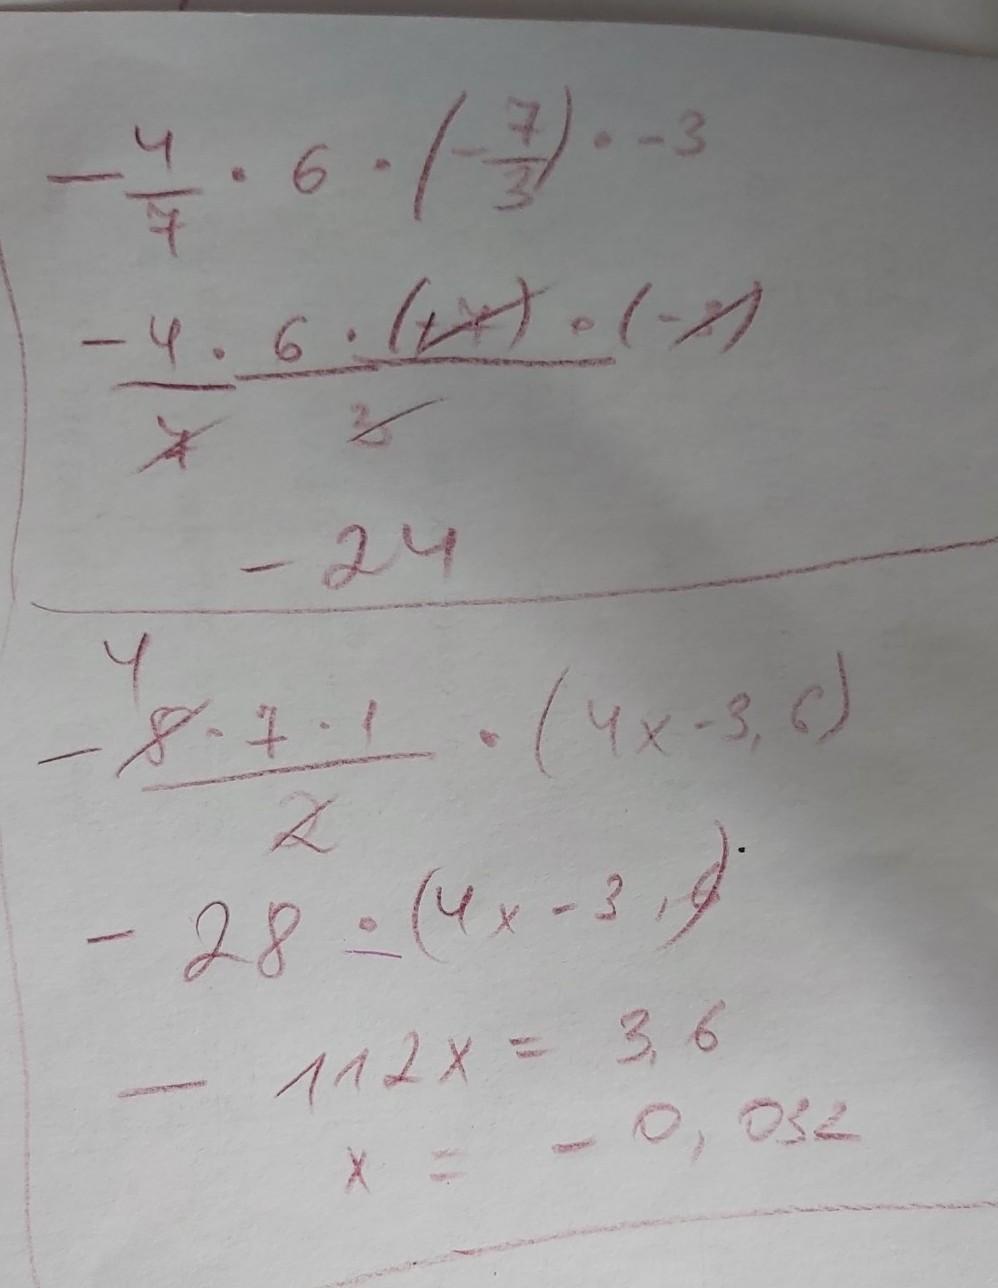 - 4/7 · 6 · (- 7/3) · -3
- 4 · 6 · (+7) · (-3)
7 3
- 24
4
- 8 · 7 · 1 / 2 · (4x - 3,6)
- 28 · (4x - 3,6)
- 112x = 3,6
x = - 0,032